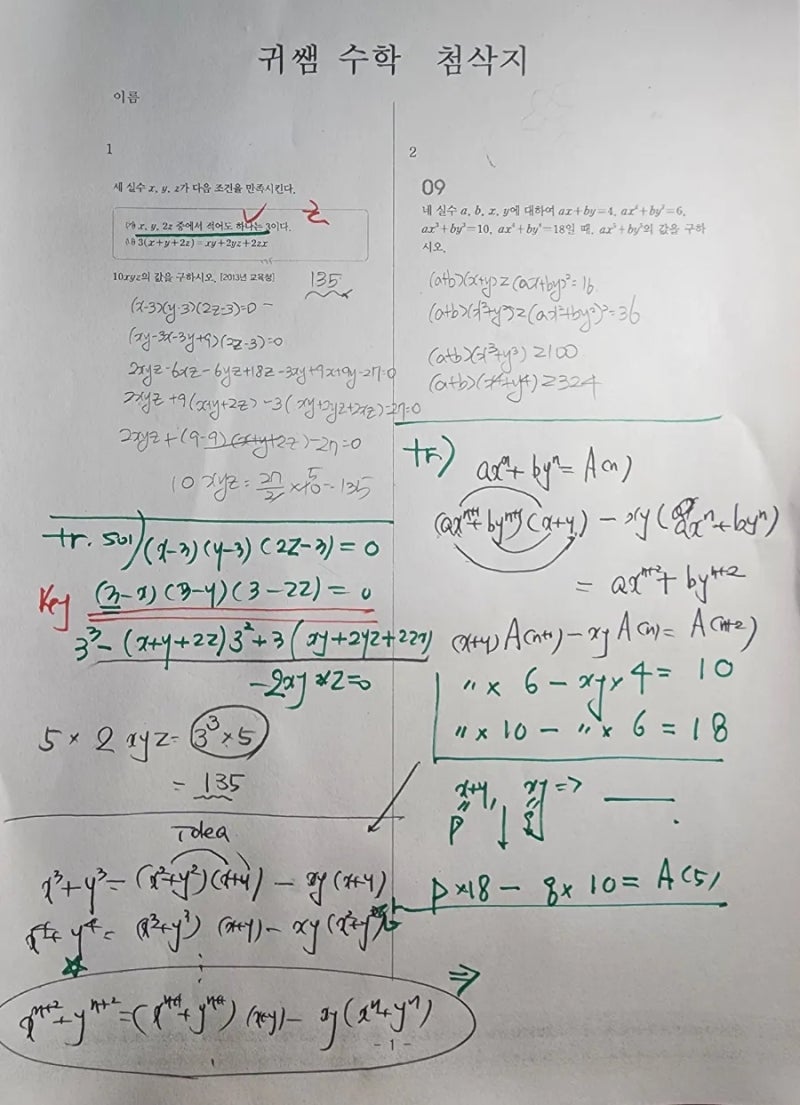 귀쌤 수학 첨삭지
이름
1
세 실수 x, y, z가 다음 조건을 만족시킨다.
(가) x, y, 2z 중에서 적어도 하나는 3이다.
(나) 3(x+y+2z)=xy+2yz+2zx
10xyz의 값을 구하시오. [2013년 교육청]
135
(x-3)(y-3)(2z-3)=0
(xy-3x-3y+9)(2z-3)=0
2xyz-6xz-6yz+18z-3xy+9x+9y-27=0
2xyz+9(x+y+2z)-3(xy+2yz+2xz)-27=0
2xyz+(9-9)(x+y+2z)-27=0
10xyz=27/2×10=135
5
tr. sol) (x-3)(y-3)(2z-3)=0
Key (3-x)(3-y)(3-2z)=0
3³-(x+y+2z)3²+3(xy+2yz+2zx)
-2xyz=0
5×2xyz=3³×5
=135
Idea
x³+y³=(x²+y²)(x+y)-xy(x+y)
x⁴+y⁴=(x³+y³)(x+y)-xy(x²+y²)
xⁿ⁺²+yⁿ⁺²=(xⁿ⁺¹+yⁿ⁺¹)(x+y)-xy(xⁿ+yⁿ)
2
09
네 실수 a, b, x, y에 대하여 ax+by=4, ax²+by²=6,
ax³+by³=10, ax⁴+by⁴=18일 때, ax⁵+by⁵의 값을 구하
시오.
(a+b)(x+y)≥(ax+by)²=16
(a+b)(x²+y²)≥(ax²+by²)²=36
(a+b)(x³+y³)≥100
(a+b)(x⁴+y⁴)≥324
tr.)
axⁿ+byⁿ=A(n)
(axⁿ⁺¹+byⁿ⁺¹)(x+y)-xy(axⁿ+byⁿ)
=axⁿ⁺²+byⁿ⁺²
(x+y)A(n+1)-xyA(n)=A(n+2)
〃×6-xy×4=10
〃×10-〃×6=18
x+y, xy ⇒
p q
p×18-q×10=A(5)
- 1 -